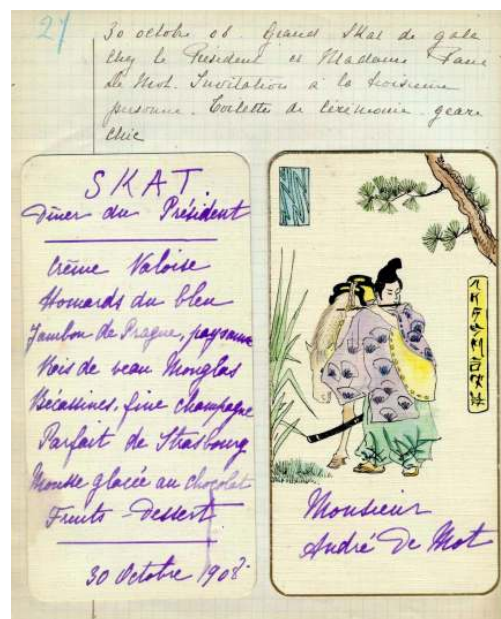 27
30 octobre 08. Grand Skat de gala
chez le Président et Madame Paul
de Mot. Invitation à la troisième
personne. Toilettes de cérémonie. genre
chic
SKAT.
Dîner du Président
Crème Valoise
Homards du bleu
Jambon de Prague, paysanne
Noix de veau Monglas
Bécassines, fine champagne
Parfait de Strasbourg
Mousse glacée au chocolat
Fruits - Dessert
30 Octobre 1908.
Monsieur
André De Mot